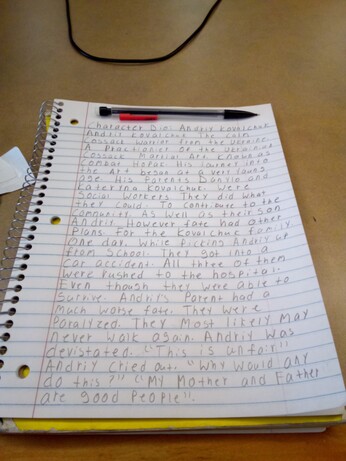 Character Bio: Andriy Kovalchuk
Andriy Kovalchuk The Calm
Cossack Warrior from the Ukraine.
A Practitioner of the Ukrainian
Cossack Martial Art Known as
Combat Hopak His Journey into
the Art began at a very young
age His Parents Danylo and
Katerina Kovalchuk. Were
Social Workers They did what
they could. To Contribute to the
Community. As Well as their son
Andriy. However fate had other
Plans For the Kovalchuk family.
One day. While Picking Andriy up
from School. They got into a
Car accident. All three of them
were rushed to the hospital.
Even though they were able to
Survive. Andriy's Parent had a
Much worse fate. They were
Paralyzed. They Most likely May
never walk again. Andriy was
devistated. "This is unfair!!
Andriy Cried out. "Why Would any
do this?" "My Mother and Father
are good People".